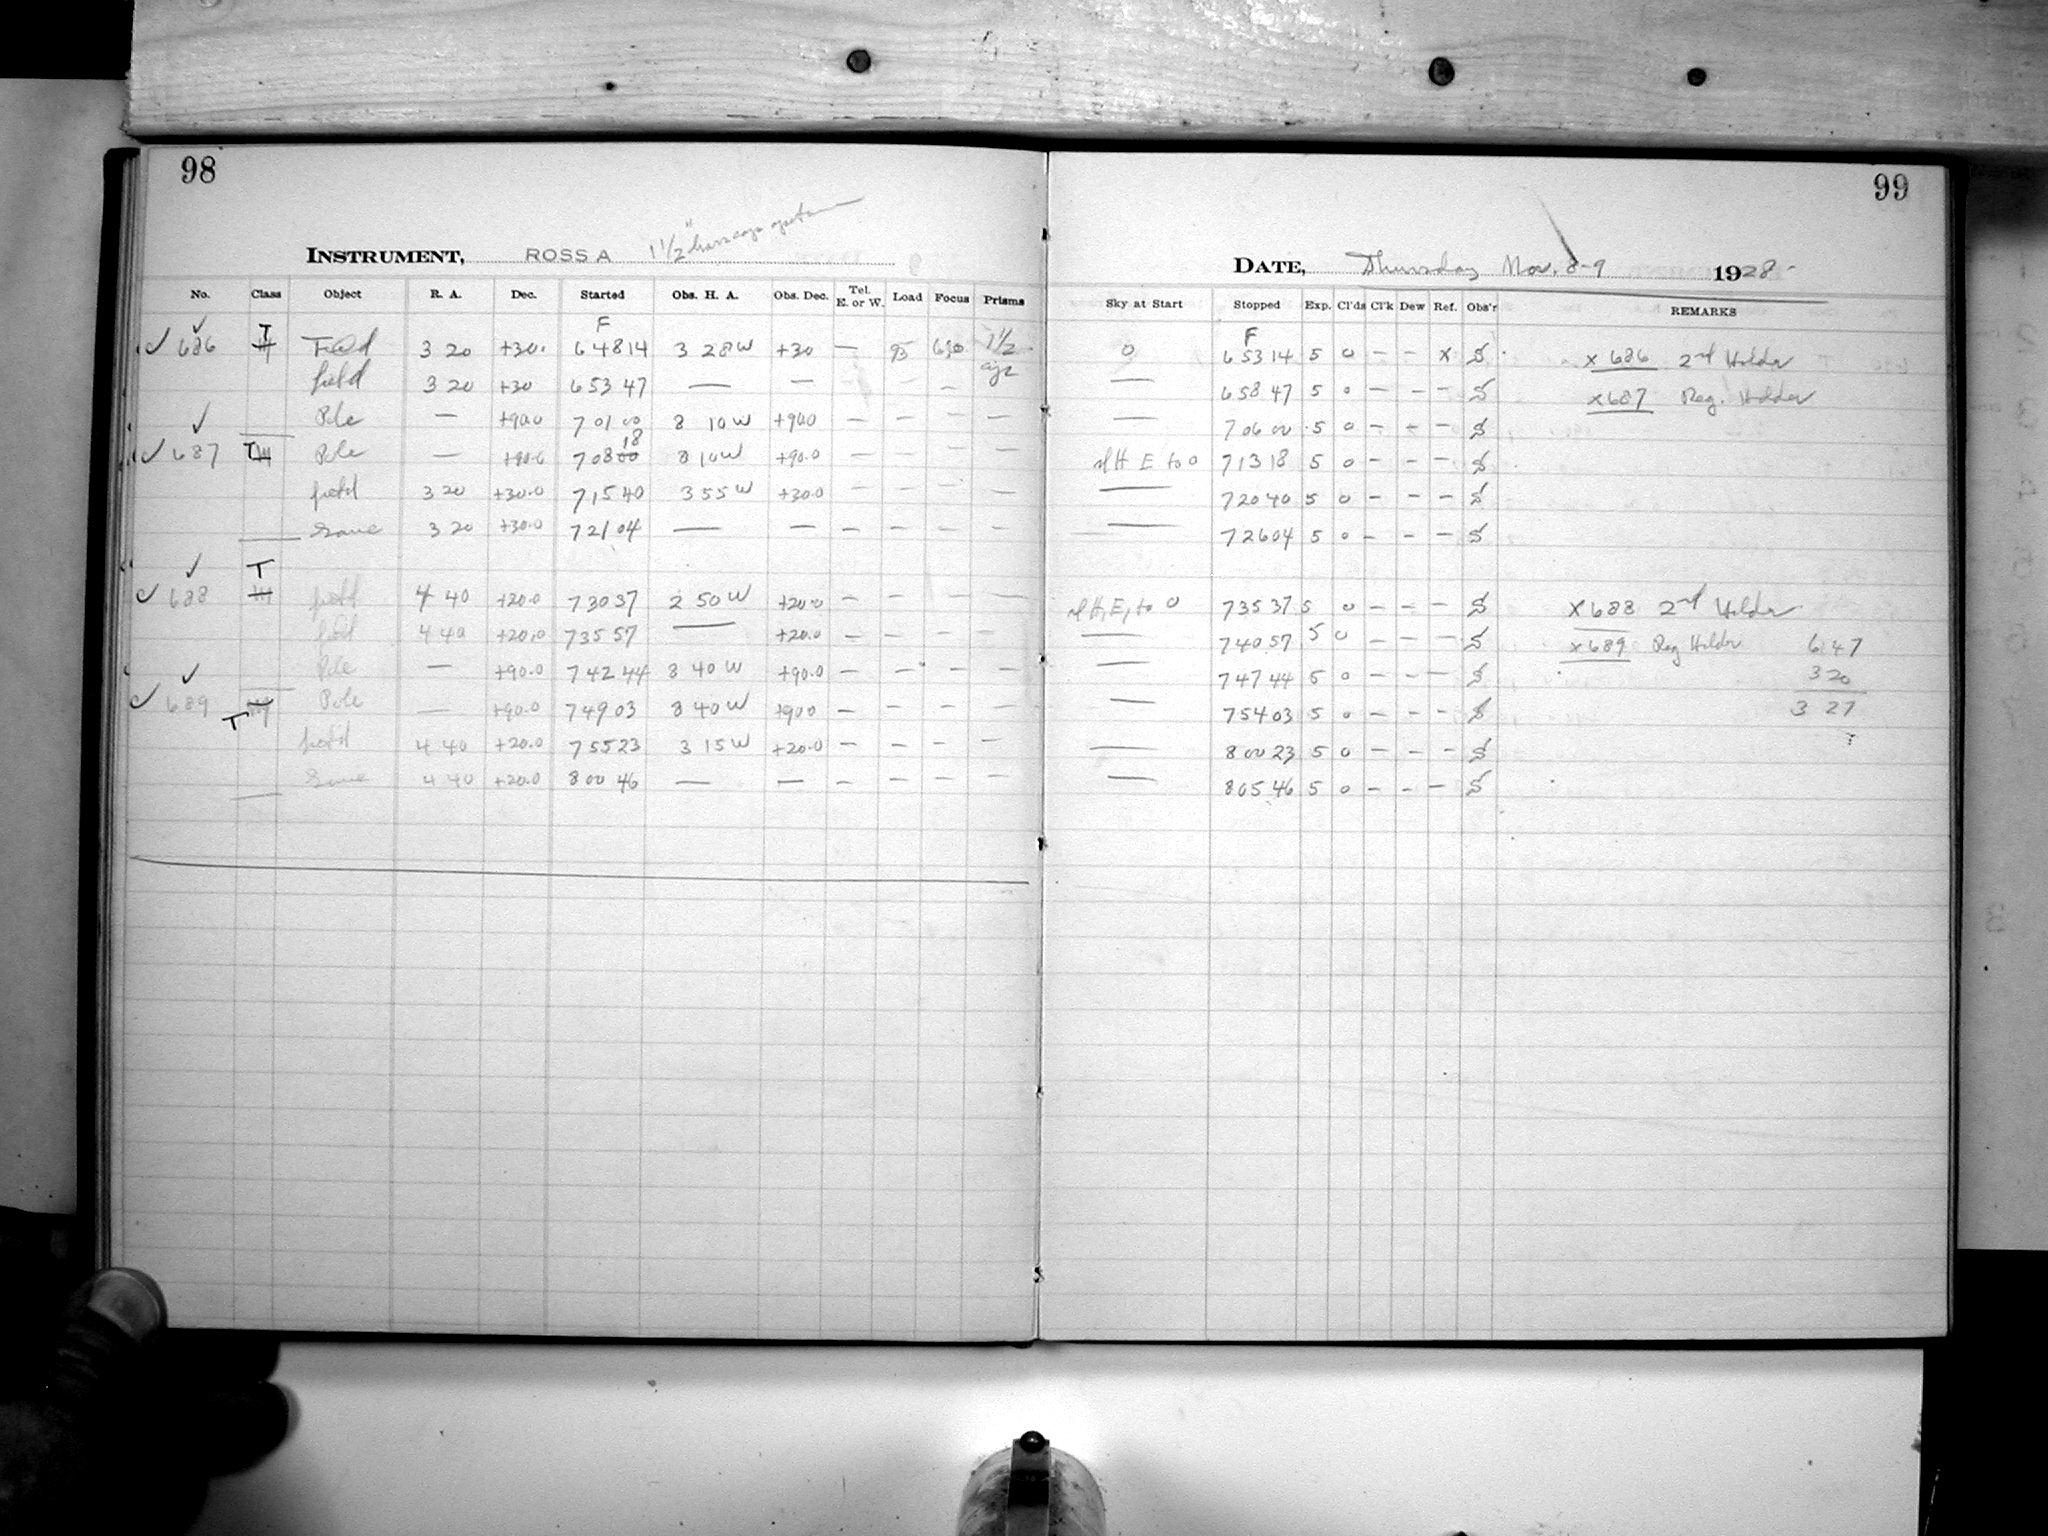 98
INSTRUMENT, ROSS A 1 1/2"
No. Class Object R. A. Dec. Started Obs. H. A. Obs. Dec. Tel. E. or W. Load Focus Prisms
F
✓ 686 T Field 3 20 +30. 6 48 14 3 28 W +30 — 95 630 1 1/2
field 3 20 +30 6 53 47 — — —
Pole — +90.0 7 01 00 8 10 W +90.0 — — — —
18
✓ 687 T Pole — +90.0 7 08 00 8 10 W +90.0 — — — —
field 3 20 +30.0 7 15 40 3 55 W +30.0 — — — —
Same 3 20 +30.0 7 21 04 — — — — — —
T
✓ 688 field 4 40 +20.0 7 30 37 2 50 W +20.0 — — — —
field 4 40 +20.0 7 35 57 — +20.0 — — — —
Pole — +90.0 7 42 44 8 40 W +90.0 — — — —
✓ 689 T Pole — +90.0 7 49 03 8 40 W +90.0 — — — —
field 4 40 +20.0 7 55 23 3 15 W +20.0 — — — —
Same 4 40 +20.0 8 00 46 — — — — — —
99
DATE, Thursday Nov. 8-9 1928-
Sky at Start Stopped Exp. Cl'ds Cl'k Dew Ref. Obs'r REMARKS
F
0 6 53 14 5 0 — — x S x 686 2nd Holder
— 6 58 47 5 0 — — — S x 687 Reg. Holder
— 7 06 00 5 0 — — — S
H E to 0 7 13 18 5 0 — — — S
— 7 20 40 5 0 — — — S
— 7 26 04 5 0 — — — S
H, E, to 0 7 35 37 5 0 — — — S x 688 2nd Holder
— 7 40 57 5 0 — — — S x 689 Reg Holder 6 47
— 7 47 44 5 0 — — — S 3 20
— 7 54 03 5 0 — — — S 3 27
— 8 00 23 5 0 — — — S
— 8 05 46 5 0 — — — S